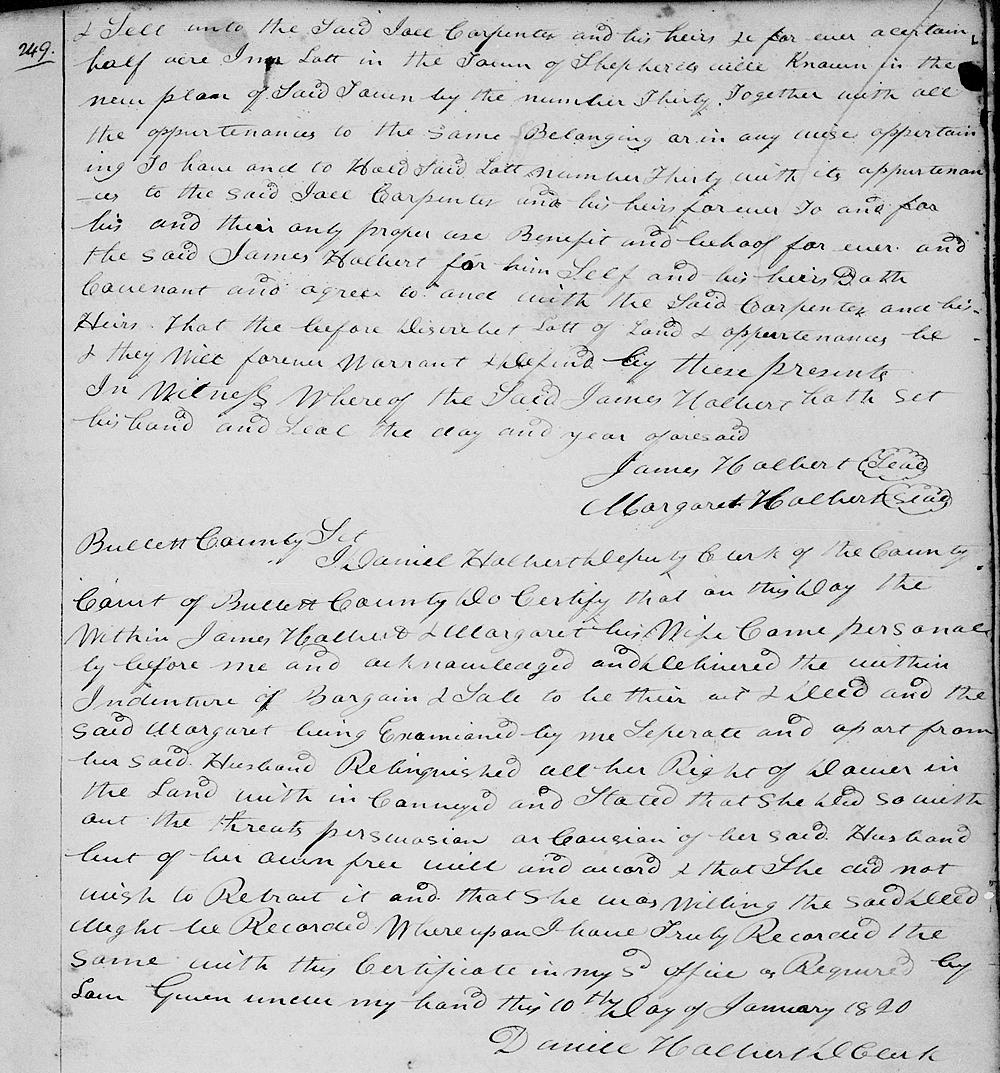 249.
& Sell unto the Said Joel Carpenter and his heirs &c for ever a certain
half acre Inn Lott in the Town of Shepherdsville Known in the
new plan of Said Town by the number Thirty. Together with all
the appurtenances to the Same Belonging or in any wise appertain
ing To have and to Hold Said Lott number Thirty with its appurtenan
-ces to the Said Joel Carpenter and his heirs for ever To and for
his and their only proper use Benefit and behoof for ever. and
the Said James Halbert for him Self and his heirs Doth
Covenant and agree to and with the Said Carpenter and his
Heirs. That the before Discribet Lott of Land & appurtenances he
& they Will forever Warrant & defind by these presents
In Witness Whereof the Said James Halbert hath Set
his hand and Seal the day and year aforesaid
James Halbert Seal
Margaret Halbert Seal
Bullett County Sct
I Daniel Halbert Deputy Clerk of the County
Court of Bullett County Do Certify that on this Day the
Within James Halbert & Margaret his Wife Came personal
ly before me and acknowledged and Delivered the within
Indenture of Bargain & Sale to be their act & Deed and the
Said Margaret being Examianed by me Seperate and apart from
her Said Husband Relinquished all her Right of Dower in
the Land with in Conveyed and Stated that She Did So with
out the threats perswasion or Causian of her Said Husband
but of her own free will and accord & that She did not
wish to Retract it and that She was Willing the Said Deed
Might be Recorded Whereupon I have Truly Recorded the
Same with this Certificate in my Sd office as Required by
Law Given under my hand this 10th Day of January 1820
Daniel Halbert D Clerk